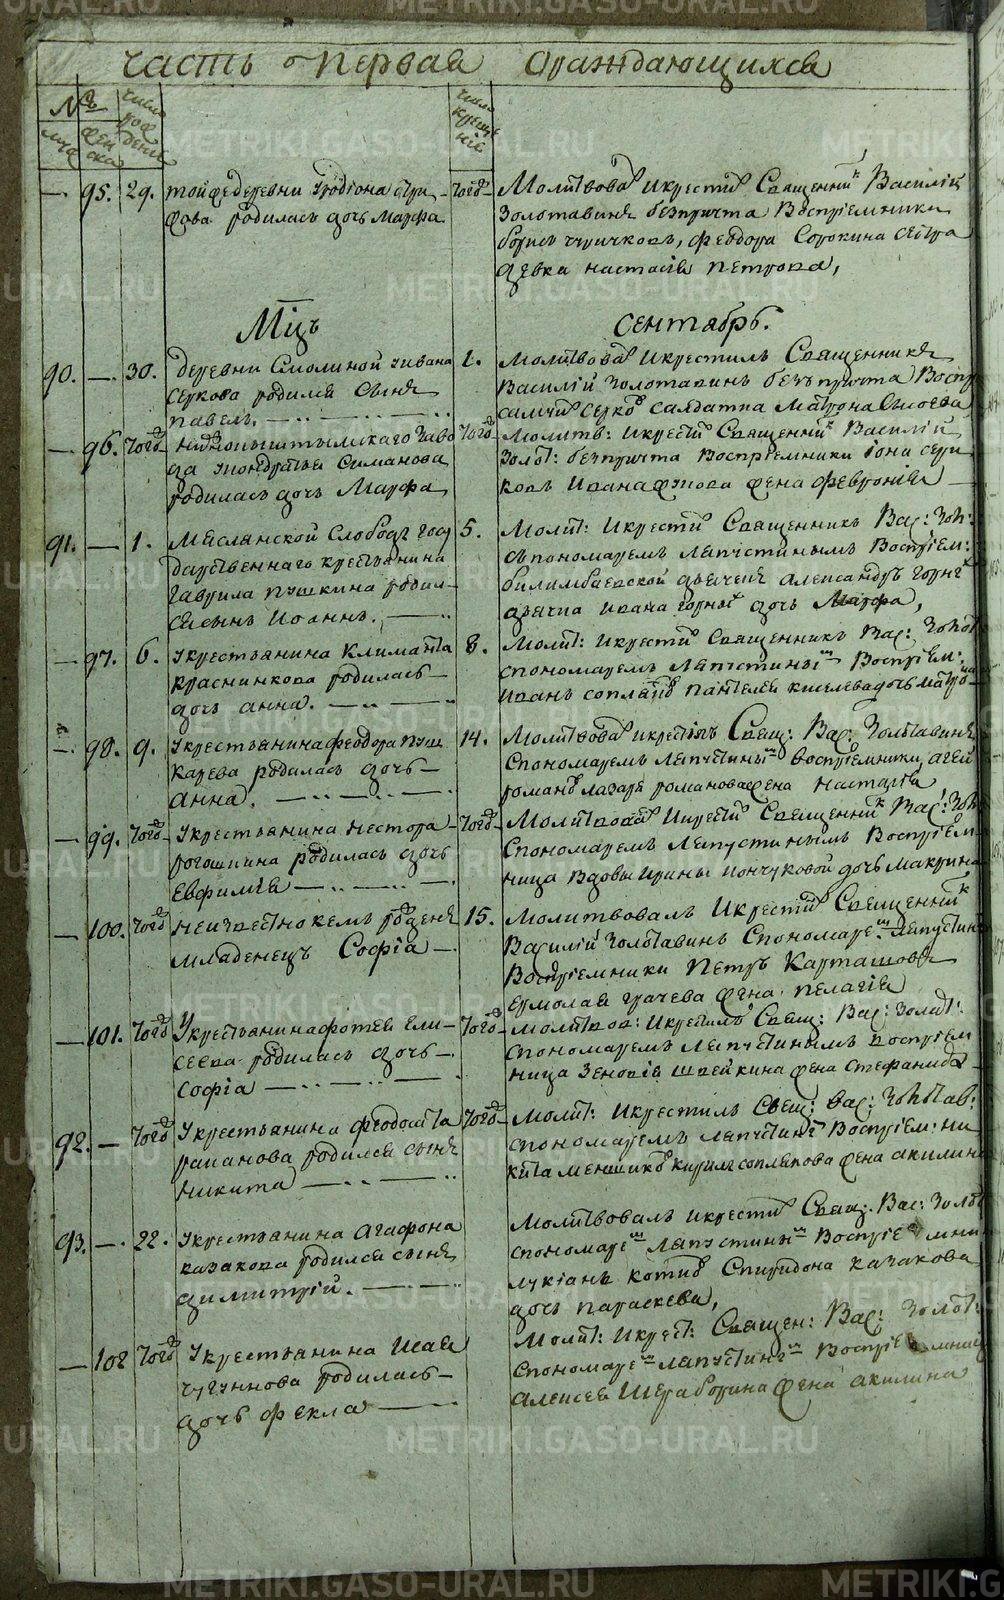 METRIKI.GASO-URAL.RU
часть первая ораждающихся
№
муж женска
число рождения
число крещенія
95. 29. тойжедеревни Уродіона
родилась дочь Марфа
тогож
Молитвовал икрестил Священник Василій
Золотавинъ безпричта Воспріемники
борись, феодора Сорокина сестра
девка настасія петрова,
Мцъ Сентябрь.
90. — 30. деревни Смолиной уивана
серкова родился сынъ
павелъ.
1. Молитвовал икрестилъ Священникъ
Василій Золотавинъ безъпричта Воспр
салдатка Матрона
96. тогож Нижнокыштымскаго заво
да укондратья Симанова
родилась дочь Марфа
тогож Молитв: икрестил Священник Василій
Золот: безпричта Воспріемники іона серк
ковъ ивана жена февронія
91. — 1. Маслянской Слободы госу
дарственнаго крестьянина
гаврила пушкина родил
ся сынъ Иоаннъ.
5. Молит: икрестил Священникъ Вас: Зол:
съпономаремъ Лапустинымъ Воспріем:
билимбаевской александръ горных
дьячка ивана горных дочь Марфа,
97. 6. укрестьянина Климанта
красникова родилась
дочь анна.
8. Молит: икрестил Священникъ Вас: Золот
спономаремъ Лапустиным Воспріем:
иванъ пантелея киселева дочь матрона
98. 9. укрестьянина феодора пуш
карева родилась дочь
анна.
14. Молитвовал икрестилъ Свящ: Вас: Золотавинъ
спономаремъ Лапустиным воспріемники агей
романов лазаря романова жена настасія
99. тогож укрестьянина нестора
рогошкина родилась дочь
Евфимія
тогож Молитвовал икрестил Священник Вас: Зол
спономаремъ Лапустинымъ Воспріем
ница вдовы ирины дочь макрина
100. тогож неизвестно кемъ рожденъ
младенецъ Софіа
15. Молитвовалъ икрестил Священник
Василій Золотавинъ спономарем Лапустин
Воспріемники петръ Карташовъ
ермолая грачева жена пелагія
101. тогож укрестьянина фотея ели
сеева родилась дочь
Софіа
тогож Молитвов: икрестилъ Свящ: Вас: Золот:
спономаремъ Лапустинымъ воспріем
ница Зеновія швейкина жена стефанида
92. — тогож укрестьянина феодота
родился сынъ
никита
тогож Молит: икрестилъ Свящ: Вас: Золотав:
спономаремъ Лапустин Воспріем: ни
кита меншиков кирила жена акилина
93. — 22. укрестьянина агафона
казакова родился сынъ
димитрій.
Молитвовалъ икрестил Свящ: Вас: Золот
спономарем Лапустиным Воспріемники
лукіанъ котов спиридона казакова
дочь параскева,
102 тогож укрестьянина Исая
чугункова родилась
дочь фекла
Молит: икрест: Священ: Вас: Золот:
спономарем Лапустин Воспріемниц
алексея жена акилина